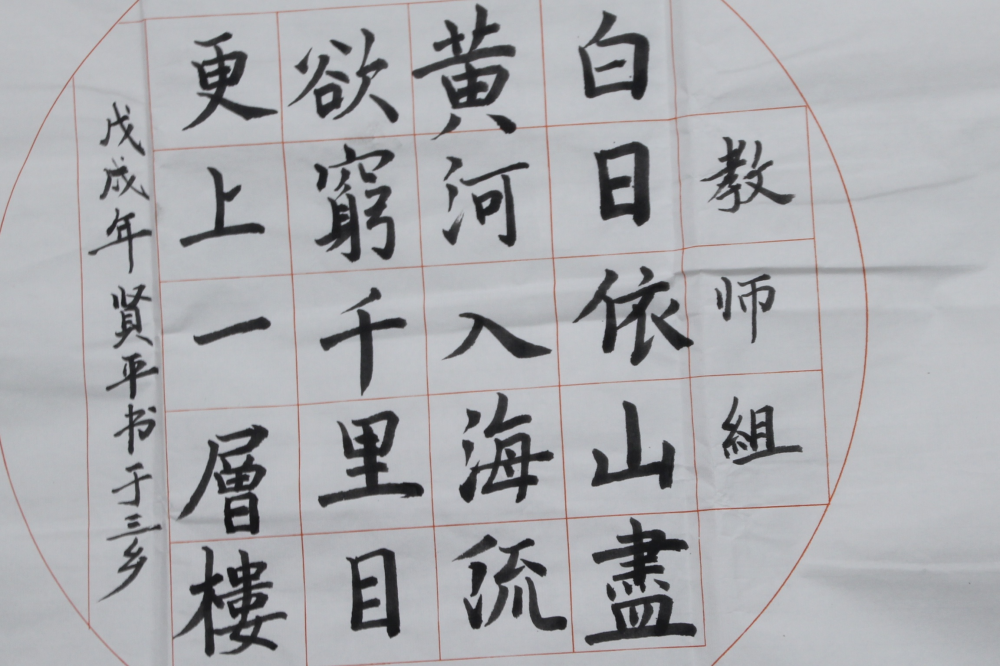 教师组
白日依山盡
黄河入海流
欲窮千里目
更上一層樓
戊戌年贤平书于三乡